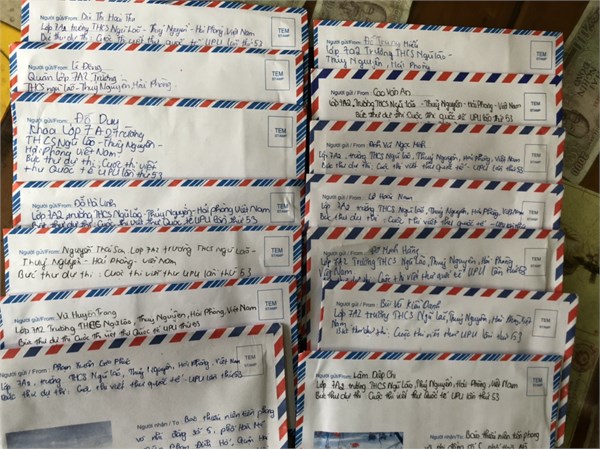 Người gửi/From: Bùi Thị Hoài Thu
Lớp 7A2 trường THCS Ngũ Lão - Thuỷ Nguyên - Hải Phòng, Việt Nam
Bức thư dự thi: Cuộc thi viết thư quốc tế UPU lần thứ 53
TEM
STAMP
Người gửi/From: Lê Đông
Quân Lớp 7A2, Trường
THCS Ngũ Lão - Thuỷ Nguyên, Hải Phòng.
TEM
STAMP
Người gửi/From: Đỗ Duy
Khoa Lớp 7A2 trường
THCS Ngũ Lão - Thuỷ Nguyên -
Hải Phòng Việt Nam
Bức thư dự thi: Cuộc thi viết
thư Quốc tế UPU lần thứ 53
TEM
STAMP
Người gửi/From: Đỗ Hà Linh
Lớp 7A2, trường THCS Ngũ Lão - Thuỷ Nguyên - Hải Phòng Việt Nam
Bức thư dự thi: Cuộc thi viết thư quốc tế UPU lần thứ 53
TEM
STAMP
Người gửi/From: Nguyễn Thái Sơn Lớp 7A2 trường THCS Ngũ Lão -
Thuỷ Nguyên - Hải Phòng - Việt Nam
Bức thư dự thi: Cuộc thi viết thư quốc tế UPU lần thứ 53
TEM
STAMP
Người gửi/From: Vũ Huyền Trang
Lớp 7A2, Trường THCS Ngũ Lão, Thuỷ Nguyên, Hải Phòng, Việt Nam
Bức thư dự thi: Cuộc thi viết thư Quốc tế UPU lần thứ 53
TEM
STAMP
Người gửi/From: Phạm Xuân
Lớp 7A2, trường THCS Ngũ Lão, Thuỷ Nguyên, Hải Phòng, Việt Nam
Bức thư dự thi: Cuộc thi viết thư quốc tế UPU lần thứ 53
TEM
STAMP
Người nhận/To: Báo thiếu niên tiền phong
số 5, phố Hoà Mã
Người gửi/From: Hiếu
Lớp 7A2 Trường THCS Ngũ Lão -
Thuỷ Nguyên, Hải Phòng
TEM
STAMP
Người gửi/From: Cao Văn An
Lớp 7A2, Trường THCS Ngũ Lão - Thuỷ Nguyên - Hải Phòng - Việt Nam
Bức thư dự thi: Cuộc thi viết thư quốc tế UPU lần thứ 53
TEM
STAMP
Người gửi/From: Vũ Ngọc
Lớp 7A2, trường THCS Ngũ Lão, Thuỷ Nguyên, Hải Phòng, Việt Nam
Bức thư dự thi: Cuộc thi viết thư quốc tế UPU lần thứ 53
TEM
STAMP
Người gửi/From: Lê Hoài Nam
Lớp 7A2 trường THCS Ngũ Lão, Thuỷ Nguyên, Hải Phòng, Việt Nam
Bức thư dự thi: Cuộc thi viết thư quốc tế
TEM
STAMP
Người gửi/From: Minh Hằng
Lớp 7A2 Trường THCS Ngũ Lão, Thuỷ Nguyên, Hải Phòng
Việt Nam
Bức thư dự thi: Cuộc thi viết thư quốc tế UPU lần thứ 53
TEM
STAMP
Người gửi/From: Bùi Vũ Kiều Oanh
Lớp 7A2 trường THCS Ngũ Lão, Thuỷ Nguyên, Hải Phòng, Việt Nam
Bức thư dự thi: Cuộc thi viết thư quốc tế UPU lần thứ 53
TEM
STAMP
Người gửi/From: Lâm Diệp Chi
Lớp 7A2 trường THCS Ngũ Lão, Thuỷ Nguyên, Hải Phòng, Việt Nam
Bức thư dự thi: Cuộc thi viết thư quốc tế UPU lần thứ 53
TEM
STAMP
Người nhận/To: Báo thiếu niên tiền phong